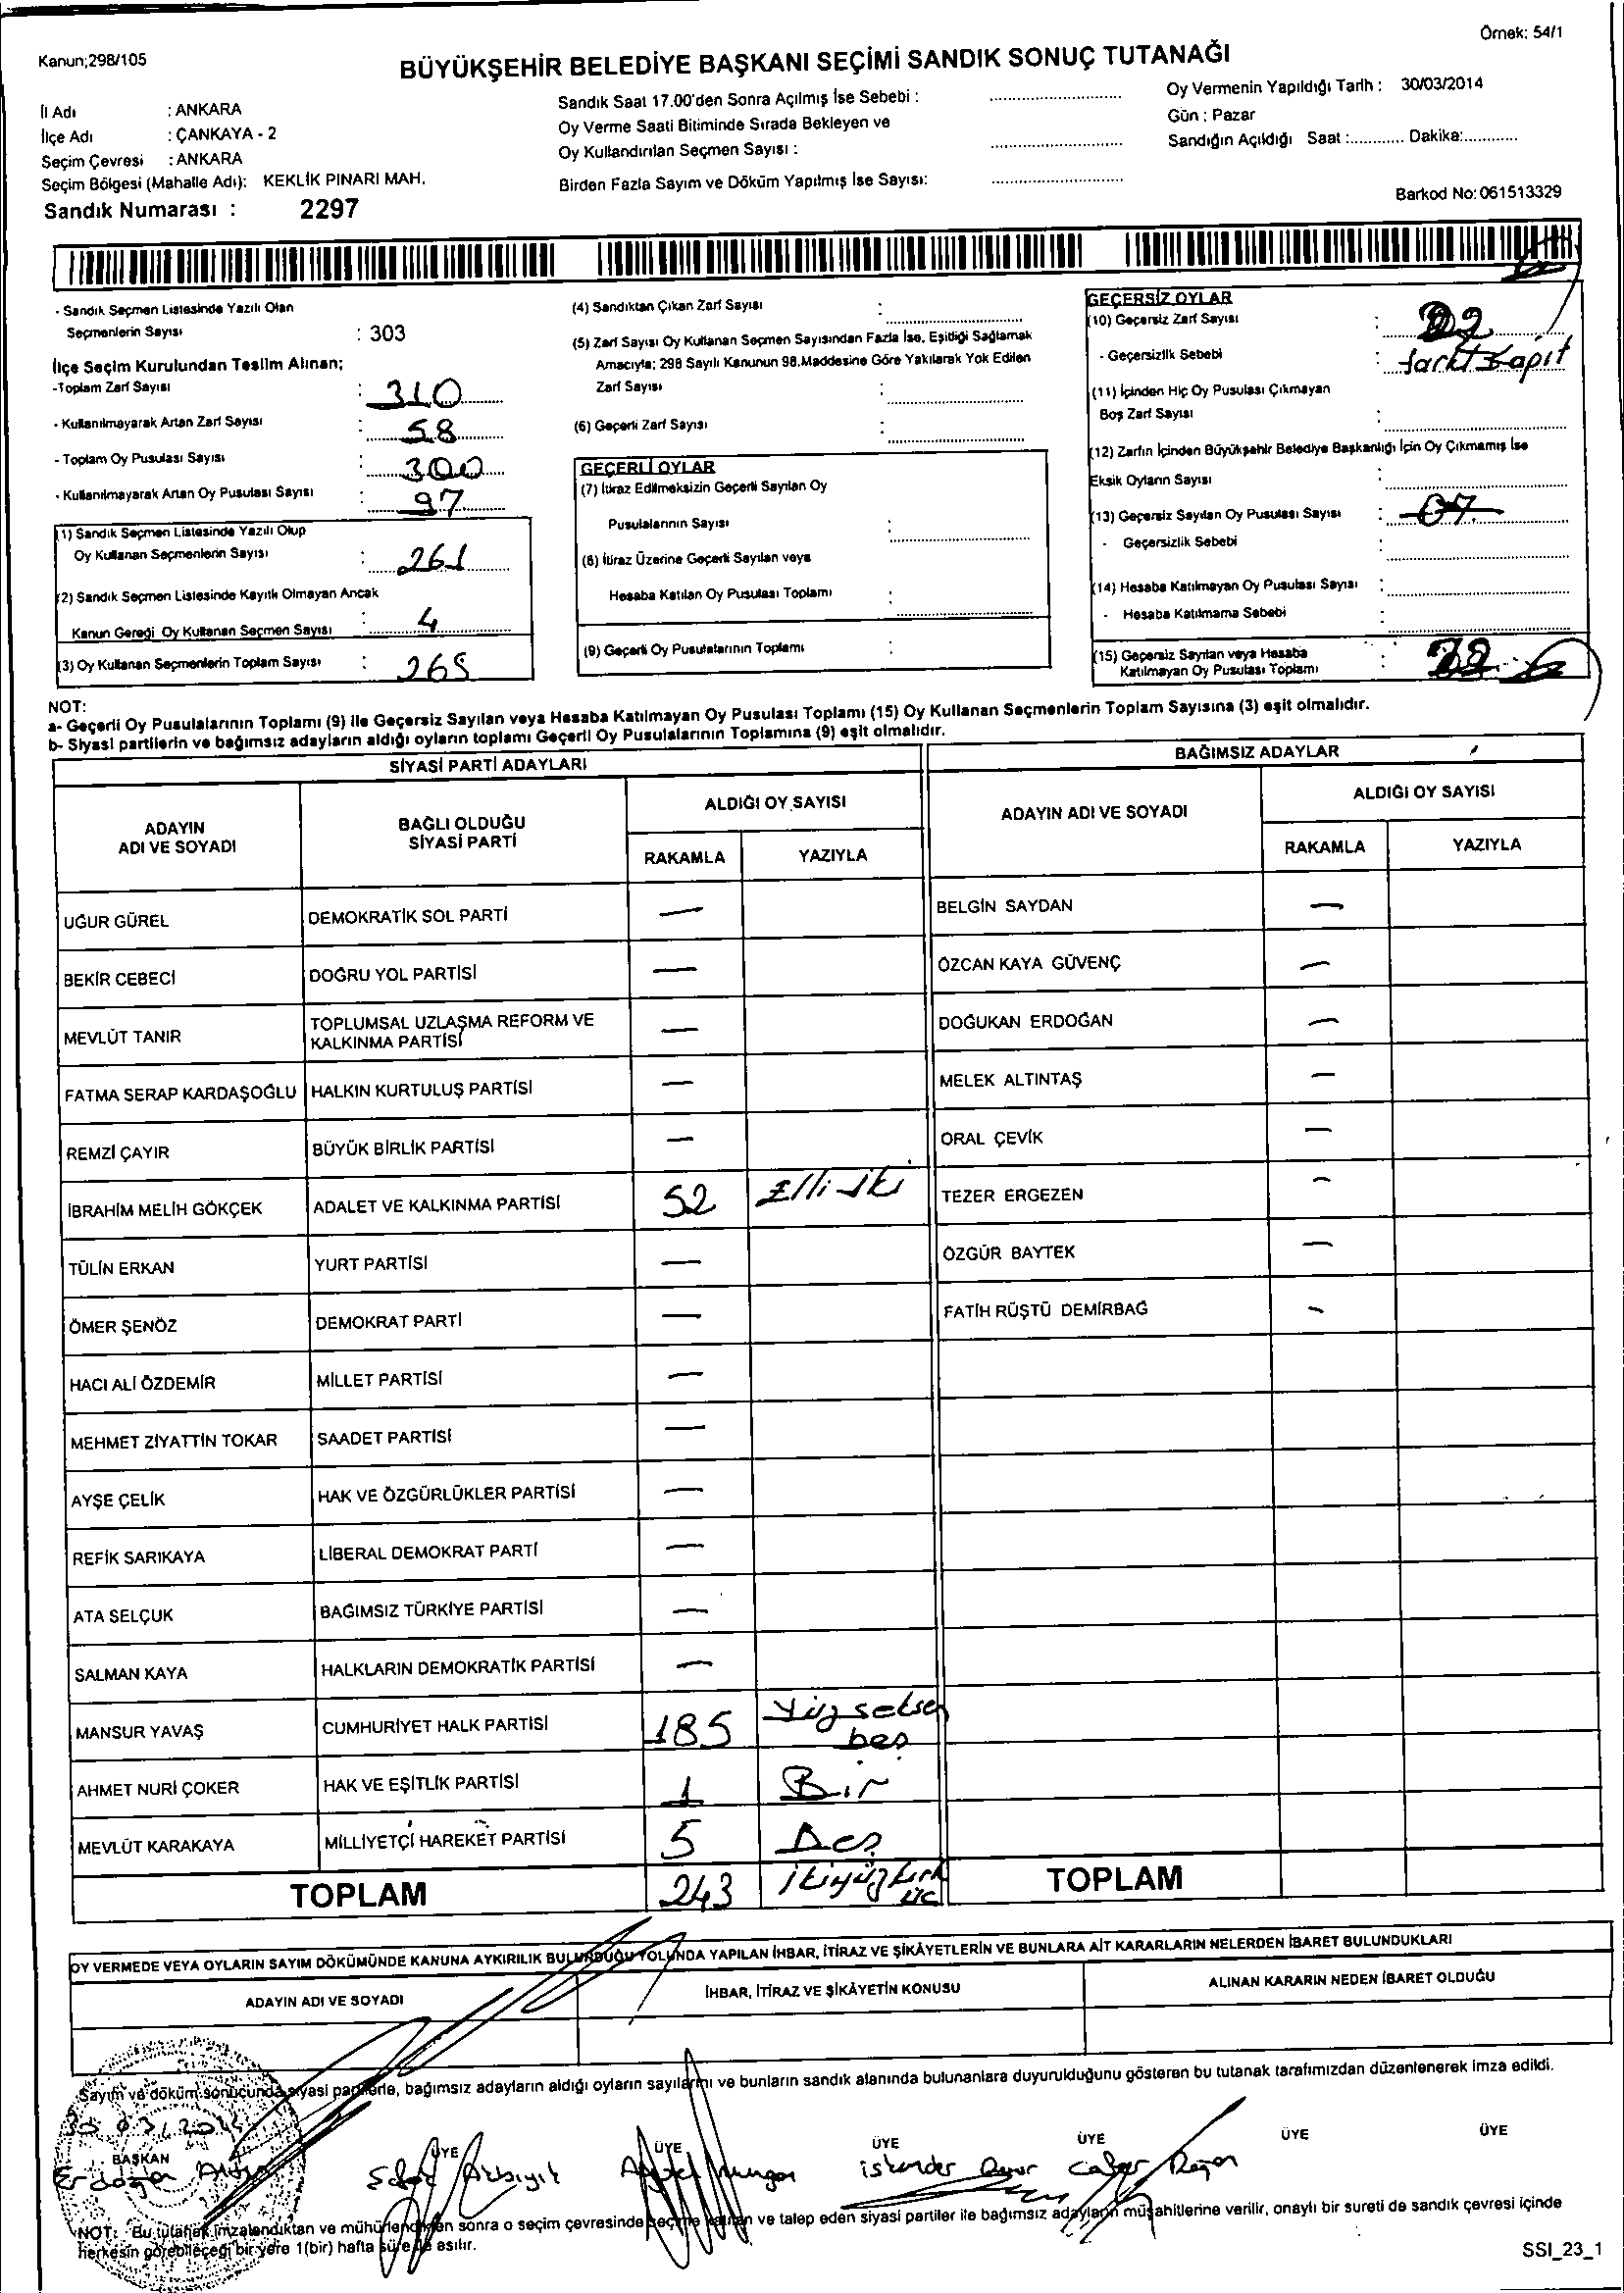 Örnek: 54/1
Kanun;298/105
BÜYÜKŞEHİR BELEDİYE BAŞKANI SEÇİMİ SANDIK SONUÇ TUTANAĞI
İl Adı : ANKARA
İlçe Adı : ÇANKAYA - 2
Seçim Çevresi : ANKARA
Seçim Bölgesi (Mahalle Adı): KEKLİK PINARI MAH.
Sandık Numarası : 2297
Sandık Saat 17.00'den Sonra Açılmış İse Sebebi :
Oy Verme Saati Bitiminde Sırada Bekleyen ve
Oy Kullandırılan Seçmen Sayısı :
Birden Fazla Sayım ve Döküm Yapılmış İse Sayısı:
Oy Vermenin Yapıldığı Tarih : 30/03/2014
Gün : Pazar
Sandığın Açıldığı Saat :............ Dakika:............
Barkod No:061513329
- Sandık Seçmen Listesinde Yazılı Olan
Seçmenlerin Sayısı : 303
İlçe Seçim Kurulundan Teslim Alınan;
-Toplam Zarf Sayısı : 310
- Kullanılmayarak Artan Zarf Sayısı : 58
- Toplam Oy Pusulası Sayısı : 300
- Kullanılmayarak Artan Oy Pusulası Sayısı : 97
(1) Sandık Seçmen Listesinde Yazılı Olup
Oy Kullanan Seçmenlerin Sayısı : 261
(2) Sandık Seçmen Listesinde Kayıtlı Olmayan Ancak
Kanun Gereği Oy Kullanan Seçmen Sayısı : 4
(3) Oy Kullanan Seçmenlerin Toplam Sayısı : 265
(4) Sandıktan Çıkan Zarf Sayısı :
(5) Zarf Sayısı Oy Kullanan Seçmen Sayısından Fazla İse, Eşitliği Sağlamak
Amacıyla; 298 Sayılı Kanunun 98.Maddesine Göre Yakılarak Yok Edilen
Zarf Sayısı :
(6) Geçerli Zarf Sayısı :
GEÇERLİ OYLAR
(7) İtiraz Edilmeksizin Geçerli Sayılan Oy
Pusulalarının Sayısı :
(8) İtiraz Üzerine Geçerli Sayılan veya
Hesaba Katılan Oy Pusulası Toplamı :
(9) Geçerli Oy Pusulalarının Toplamı :
GEÇERSİZ OYLAR
(10) Geçersiz Zarf Sayısı : 22
- Geçersizlik Sebebi :
(11) İçinden Hiç Oy Pusulası Çıkmayan
Boş Zarf Sayısı :
(12) Zarfın İçinden Büyükşehir Belediye Başkanlığı İçin Oy Çıkmamış İse
Eksik Oyların Sayısı :
(13) Geçersiz Sayılan Oy Pusulası Sayısı : 07
- Geçersizlik Sebebi :
(14) Hesaba Katılmayan Oy Pusulası Sayısı :
- Hesaba Katılmama Sebebi :
(15) Geçersiz Sayılan veya Hesaba
Katılmayan Oy Pusulası Toplamı : 22
NOT:
a- Geçerli Oy Pusulalarının Toplamı (9) ile Geçersiz Sayılan veya Hesaba Katılmayan Oy Pusulası Toplamı (15) Oy Kullanan Seçmenlerin Toplam Sayısına (3) eşit olmalıdır.
b- Siyasi partilerin ve bağımsız adayların aldığı oyların toplamı Geçerli Oy Pusulalarının Toplamına (9) eşit olmalıdır.
SİYASİ PARTİ ADAYLARI
ADAYIN ADI VE SOYADI
BAĞLI OLDUĞU SİYASİ PARTİ
ALDIĞI OY SAYISI
RAKAMLA YAZIYLA
UĞUR GÜREL DEMOKRATİK SOL PARTİ —
BEKİR CEBECİ DOĞRU YOL PARTİSİ —
MEVLÜT TANIR TOPLUMSAL UZLAŞMA REFORM VE KALKINMA PARTİSİ —
FATMA SERAP KARDAŞOĞLU HALKIN KURTULUŞ PARTİSİ —
REMZİ ÇAYIR BÜYÜK BİRLİK PARTİSİ —
İBRAHİM MELİH GÖKÇEK ADALET VE KALKINMA PARTİSİ 52 Elli iki
TÜLİN ERKAN YURT PARTİSİ —
ÖMER ŞENÖZ DEMOKRAT PARTİ —
HACI ALİ ÖZDEMİR MİLLET PARTİSİ —
MEHMET ZİYATTİN TOKAR SAADET PARTİSİ —
AYŞE ÇELİK HAK VE ÖZGÜRLÜKLER PARTİSİ —
REFİK SARIKAYA LİBERAL DEMOKRAT PARTİ —
ATA SELÇUK BAĞIMSIZ TÜRKİYE PARTİSİ —
SALMAN KAYA HALKLARIN DEMOKRATİK PARTİSİ —
MANSUR YAVAŞ CUMHURİYET HALK PARTİSİ 185 Yüzseksen beş
AHMET NURİ ÇOKER HAK VE EŞİTLİK PARTİSİ 1 Bir
MEVLÜT KARAKAYA MİLLİYETÇİ HAREKET PARTİSİ 5 Beş
TOPLAM 243 ikiyüzkırk üç
BAĞIMSIZ ADAYLAR
ADAYIN ADI VE SOYADI
ALDIĞI OY SAYISI
RAKAMLA YAZIYLA
BELGİN SAYDAN —
ÖZCAN KAYA GÜVENÇ —
DOĞUKAN ERDOĞAN —
MELEK ALTINTAŞ —
ORAL ÇEVİK —
TEZER ERGEZEN —
ÖZGÜR BAYTEK —
FATİH RÜŞTÜ DEMİRBAĞ —
TOPLAM
OY VERMEDE VEYA OYLARIN SAYIM DÖKÜMÜNDE KANUNA AYKIRILIK BULUNDUĞU YOLUNDA YAPILAN İHBAR, İTİRAZ VE ŞİKÂYETLERİN VE BUNLARA AİT KARARLARIN NELERDEN İBARET BULUNDUKLARI
ADAYIN ADI VE SOYADI
İHBAR, İTİRAZ VE ŞİKÂYETİN KONUSU
ALINAN KARARIN NEDEN İBARET OLDUĞU
Sayım ve döküm sonucunda siyasi partilerle, bağımsız adayların aldığı oyların sayılarını ve bunların sandık alanında bulunanlara duyurulduğunu gösteren bu tutanak tarafımızdan düzenlenerek imza edildi.
30.03.2014
BAŞKAN ÜYE ÜYE ÜYE ÜYE ÜYE ÜYE
NOT: Bu tutanak imzalandıktan ve mühürlendikten sonra o seçim çevresinde seçime katılan ve talep eden siyasi partiler ile bağımsız adayların müşahitlerine verilir, onaylı bir sureti de sandık çevresi içinde
herkesin görebileceği bir yere 1(bir) hafta süre ile asılır.
SSI_23_1